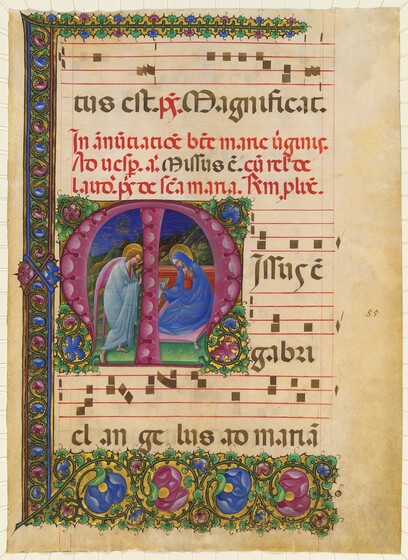 tus est. ps. Magnificat.
In ānūtiatiōe btē marie ūginis.
Ad uesp. a. Missus ē. cū rel' de
laud. ps. de scā maria.
M issus ē
gabri
el an ge lus ad mariā
55